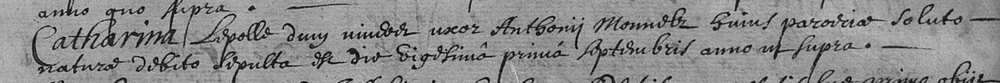 anno quo supra.
Catharina Lepolle dum viveret uxor Anthonii Monnetz huius parociæ soluto
naturæ debito sepulta est die vigesimâ primâ septembris anno ut supra.